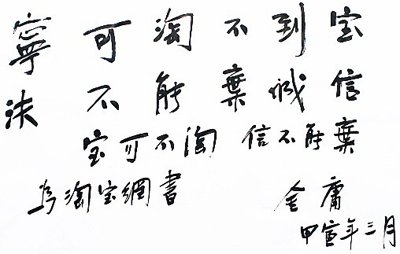 寧可淘不到宝
決不能棄诚信
宝可不淘 信不能棄
为淘宝網書 金庸
甲 年三月